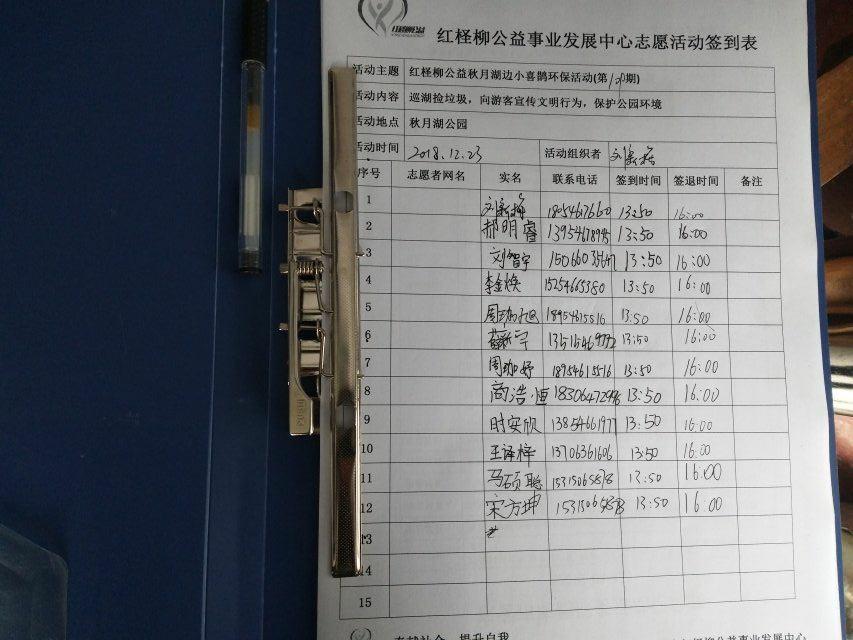 红柽柳公益事业发展中心志愿活动签到表
活动主题 红柽柳公益秋月湖边小喜鹊环保活动(第 期)
活动内容 巡湖捡垃圾，向游客宣传文明行为，保护公园环境
活动地点 秋月湖公园
活动时间 2018.12.23 活动组织者
序号 志愿者网名 实名 联系电话 签到时间 签退时间 备注
1 18054676660 13:50 16:00
2 郝明睿 13:50 16:00
3 刘智宇 13:50 16:00
4 李金焕 15254665380 13:50 16:00
5 18954615516 13:50 16:00
6 13:50 16:00
7 周珈妤 18954615516 13:50 16:00
8 商浩恒 13:50 16:00
9 时安欣 13:50 16:00
10 王译梓 13706361606 13:50 16:00
11 马硕聪 15315065878 13:50 16:00
12 宋方坤 13:50 16:00
13
14
15
奉献社会 提升自我 红柽柳公益事业发展中心